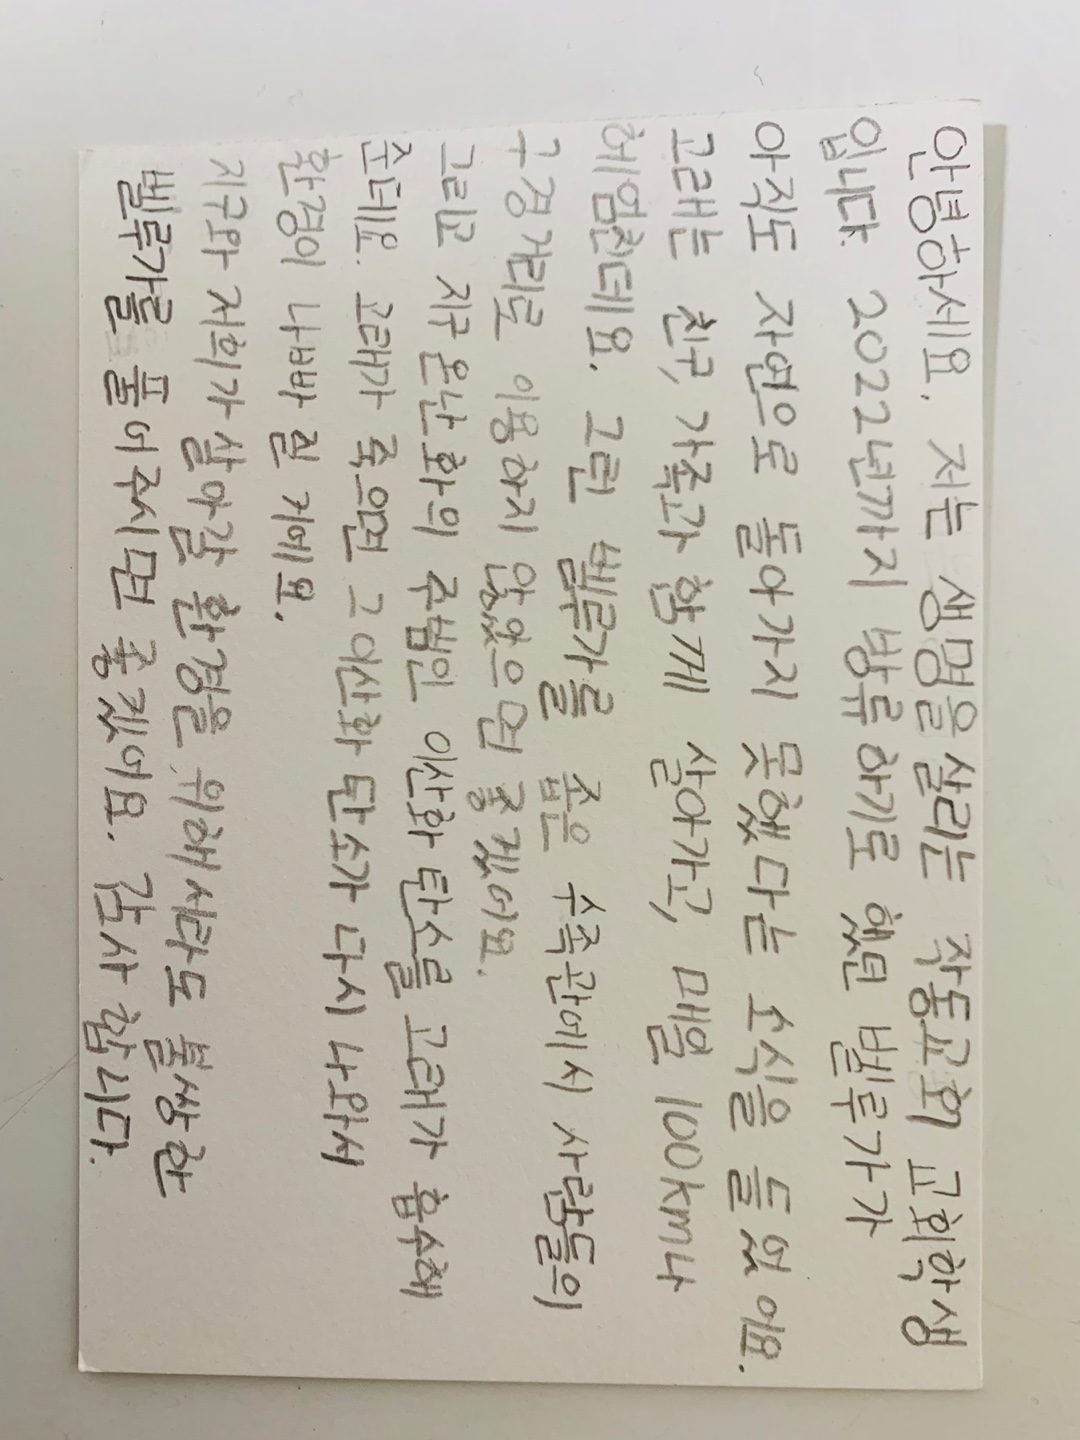 안녕하세요. 저는 생명을 살리는 작동교회 교회학생
입니다. 2022년까지 방류하기로 했던 벨루가가
아직도 자연으로 돌아가지 못했다는 소식을 들었어요.
고래는 친구, 가족과 함께 살아가고, 매일 100km나
헤엄친데요. 그런 벨루가를 좁은 수족관에서 사람들의
구경거리로 이용하지 않았으면 좋겠어요.
그리고 지구온난화의 주범인 이산화 탄소를 고래가 흡수해
준데요. 고래가 죽으면 그 이산화 탄소가 다시 나와서
환경이 나빠 질 거에요.
지구와 저희가 살아갈 환경을 위해서라도 불쌍한
벨루가를 풀어주시면 좋겠어요. 감사 합니다.